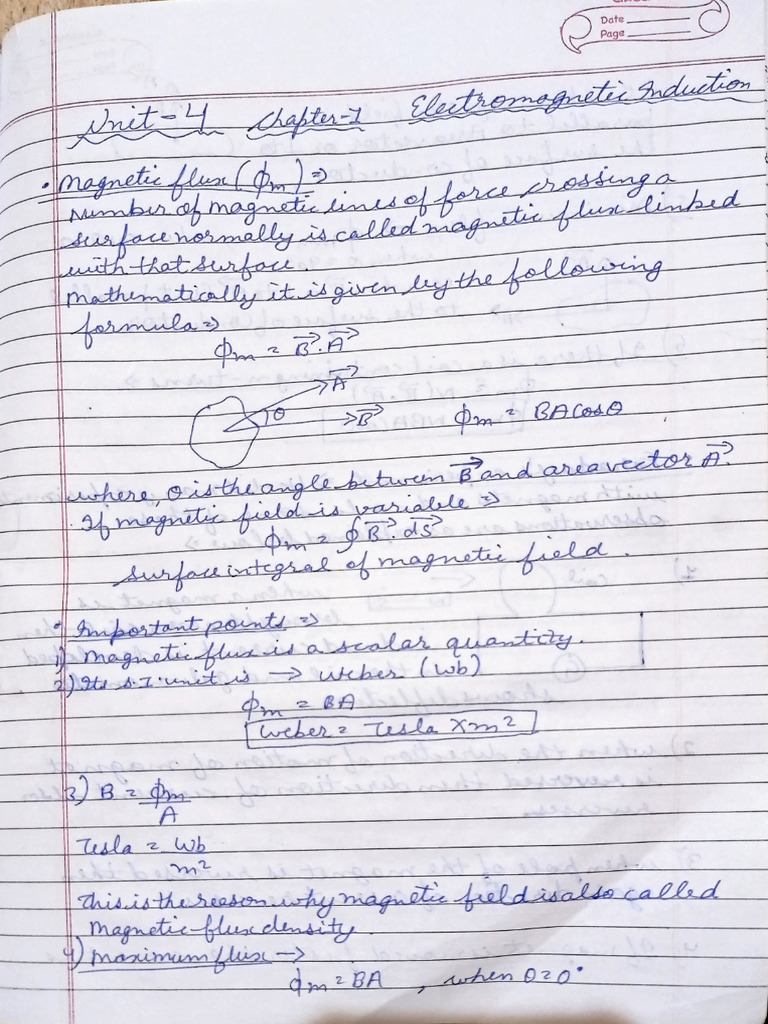 Date
Page
Unit-4 Chapter-1 Electromagnetic Induction
• Magnetic flux (ϕm) ⇒
Number of magnetic lines of force crossing a
surface normally is called magnetic flux linked
with that surface.
Mathematically it is given by the following
formula ⇒
ϕm = B⃗.A⃗
A⃗
θ
→B⃗
ϕm = BA cosθ
where, θ is the angle between B⃗ and area vector A⃗.
• If magnetic field is variable ⇒
ϕm = ∮B⃗.dS⃗
surface integral of magnetic field.
• Important points ⇒
1) Magnetic flux is a scalar quantity.
2) Its S.I. unit is → Weber (Wb)
ϕm = BA
Weber = Tesla × m²
3) B = ϕm/A
Tesla = Wb/m²
This is the reeson why magnetic field is also called
Magnetic-flux density.
4) Maximum flux →
ϕm = BA , when θ = 0°